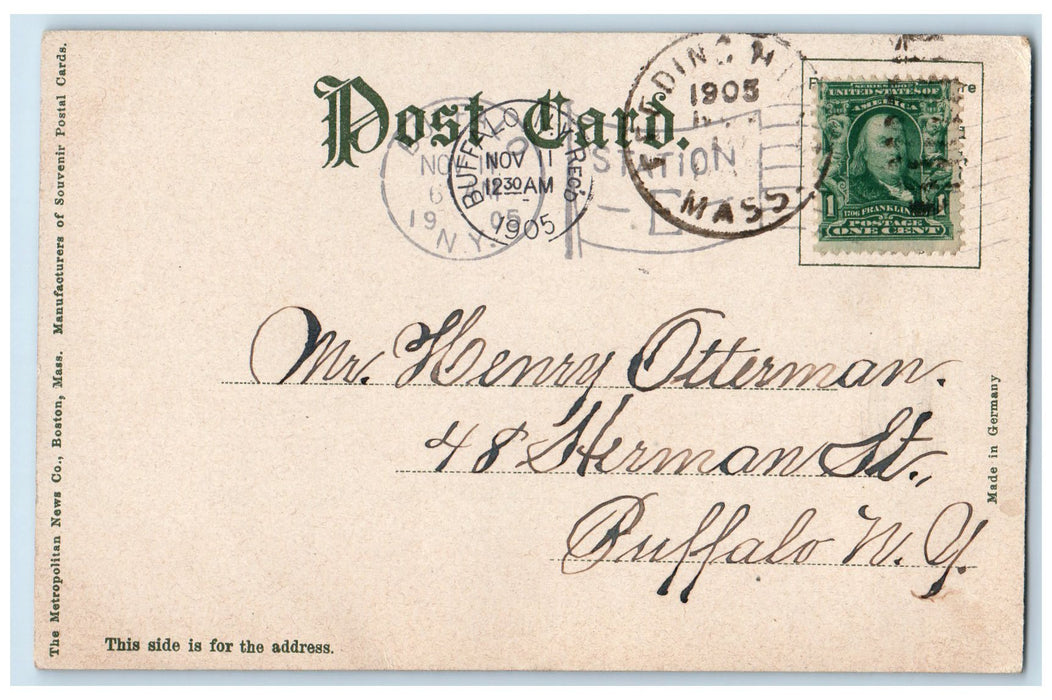 The Metropolitan News Co., Boston, Mass. Manufacturers of Souvenir Postal Cards.
Post Card.
BUFFALO N.Y. REC'D
NOV 11
12 30 AM
1905
NO
6
19 05
N.Y.
STATION
1905
MASS.
SERIES 1902
UNITED STATES OF
AMERICA
1
1706 FRANKLIN
POSTAGE
ONE CENT
Mr. Henry Otterman.
48 Herman St.,
Buffalo N. Y.
Made in Germany
This side is for the address.